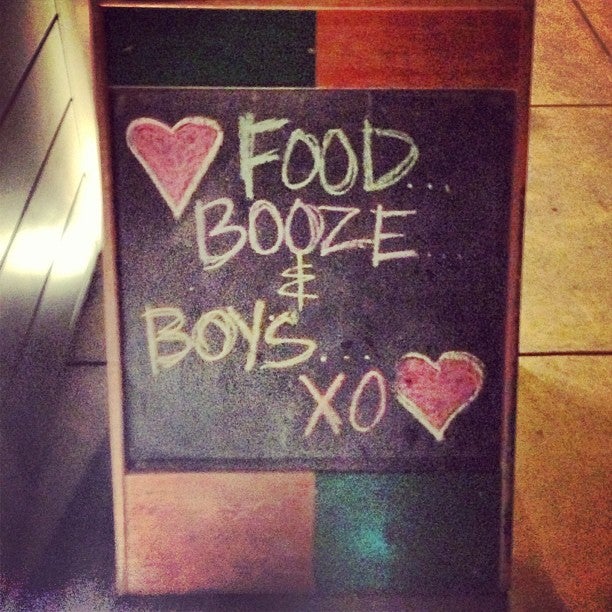 FOOD...
BOOZE...
&
BOYS...
XO